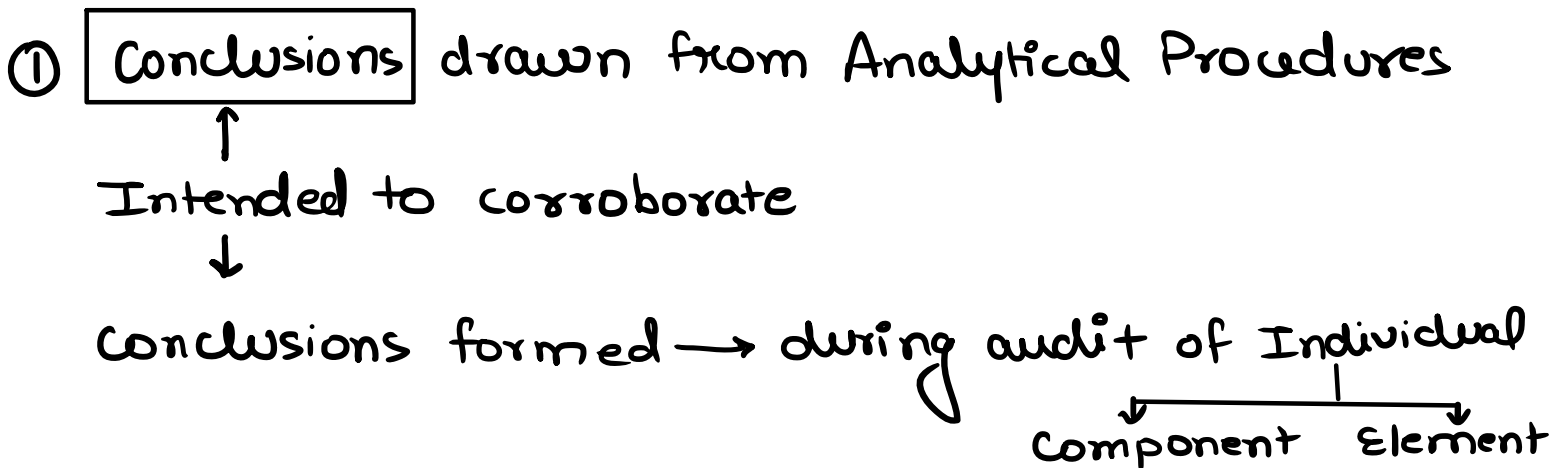 ① Conclusions drawn from Analytical Procedures
Intended to corroborate
Conclusions formed → during audit of Individual
Component Element